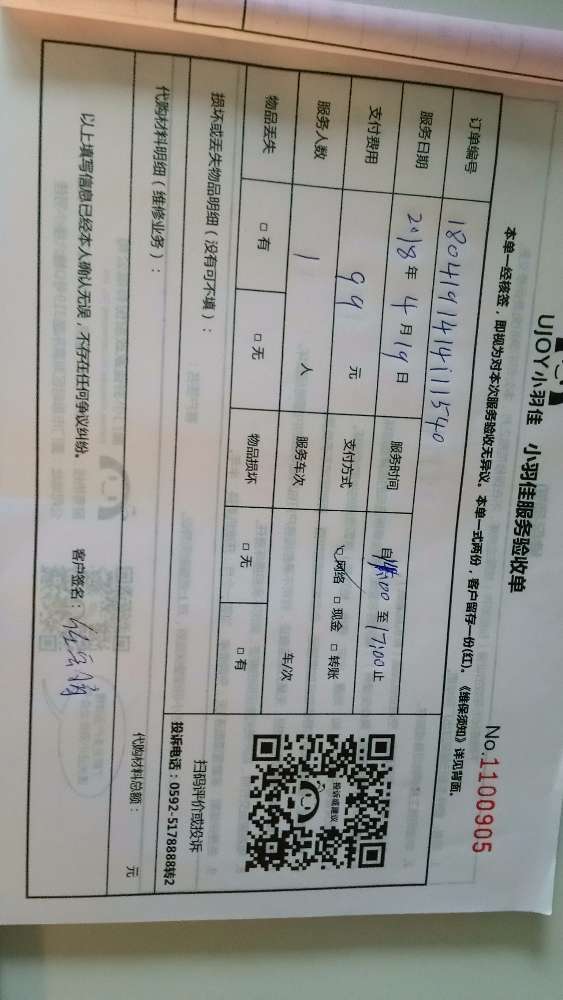 UJOY小羽佳 小羽佳服务验收单
No.1100905
本单一经核签，即视为对本次服务验收无异议。本单一式两份，客户留存一份(红)。《维保须知》详见背面。
订单编号 1804191414111540
服务日期 2018年4月19日 服务时间 自 至17:00止
支付费用 99 元 支付方式 ☑网络 □现金 □转账
服务人数 1 人 服务车次 车/次
物品丢失 □有 □无 物品损坏 □无 □有
损坏或丢失物品明细（没有可不填）：
扫码评价或投诉
投诉电话：0592-5178888转2
投诉或建议
代购材料明细（维修业务）：
代购材料总额： 元
以上填写信息已经本人确认无误，不存在任何争议纠纷。 客户签名：